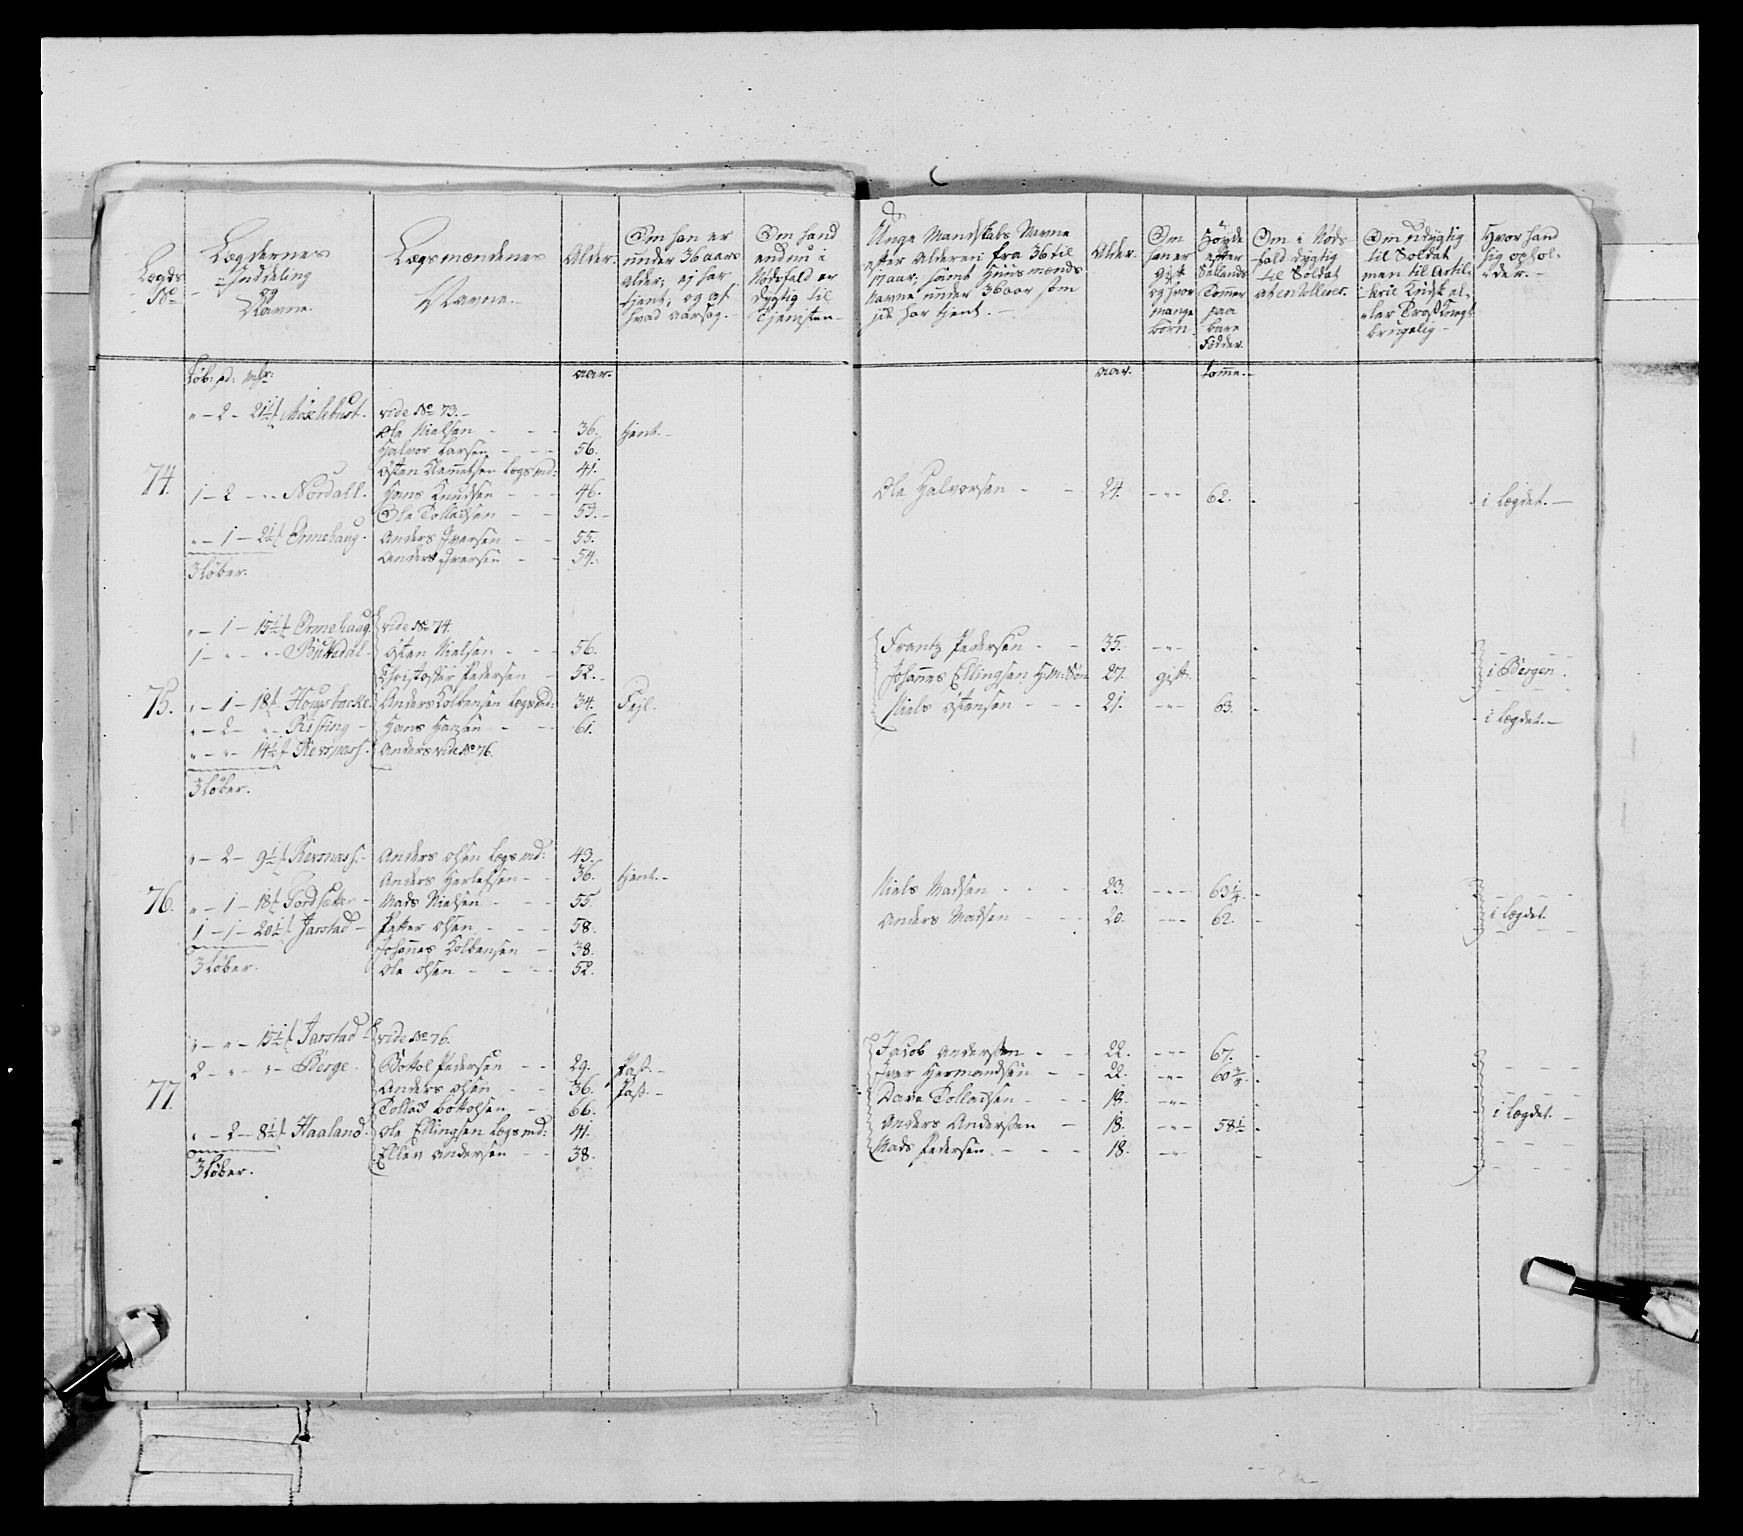 Lægds No
Lægdernes Inddeling og Navne.
Lægsmændenes Navne.
Alder.
Om han er under 36 aars Alder, ej har tjent, og af hvad aarsag.
Om hand endnu i Nødsfald er dygtig til Tjenisten
Unge Mandskabs Navne efter Alderen fra 36 til 17 aar, samt Huusmænds Navne under 36 aar som jik har tjent.
Alder.
Om han er gift og hvor mange børn.
Høyde efter Sællands Tommer paa bare Fødder.
Om i Nøds fald dygtig til Soldat at enrollere.
Om Udygtig til Soldat men til Artillerie Kudsk eller Trosknegt brugelig
Hvor hand sig opholder.
Løb: pd: mk: aar. aar. tomme.
" - 2 - 21½ Moxlebust. vide No 73.
Ole Nielsen - - - 36. tjent.
Halvor Larsen - - - 56.
74. Østen Clemetsen Lægsmd: 41.
1 - 2 - " - Nordall. Hans Knudsen - - - 46. Ole Halvorsen - - 24. - " - 62. i Lægdet.
Ole Tollachsen - - 53.
" - 1 - 2½ Ormehaug. Anders Iversen - - 55.
Anders Iversen - - 54.
3 løber.
" - 1 - 15½ Ormehaug vide No 74.
1 - " - " - Büttedal Østen Nielsen - - - 56. Frantz Pedersen - - 35. - " -
Christopher Pedersen - 52. Johannes Ellingsen H:M: Søn 27. gift. i Bergen.
75. " - 1 - 18 Hougsbacke Anders Colbensen Lægsmd: 34. Fejl. Niels Østensen - - - 21. - " - 63. i Lægdet.
" - 2 - " - Risting - Hans Hansen - - 61.
" - " - 14½ Kersnæss. Anders vide No 76.
3 løber.
" - 2 - 9½ Kersnæss. Anders Olsen Lægsmd: 43.
Anders Herlefsen - - 36. tjent.
76. " - 1 - 18 Fordsætter - Mads Nielsen - - - 55. Niels Madsen - - - 23. - " - 63¼.
1 - 1 - 20½ Jarstad - Petter Olsen - - - 58. Anders Madsen - - - 20. - " - 62. i Lægdet.
Johannes Colbensen - 38.
3 løber. Ole Olsen - - - - 52.
" - " - 15½ Jarstad - vide No 76.
2 - " - " - Berge. Bottol Pedersen - - 29. Pass. Jacob Andersen - - 22. - " - 67.
77. Anders Olsen - - 36. Pass. Iver Hermandsen - - 22. - " - 60¾.
Tollach Bottolsen - 66. Dave Tollachsen - - - 18. - " -
" - 2 - 8½ Haaland. Ole Ellingsen Lægsmd: 41. Anders Andersen - 18. - " - 58½ i Lægdet.
Ellen Andersen - - 38. Mads Pedersen. - - - 18. - " -
3 løber.